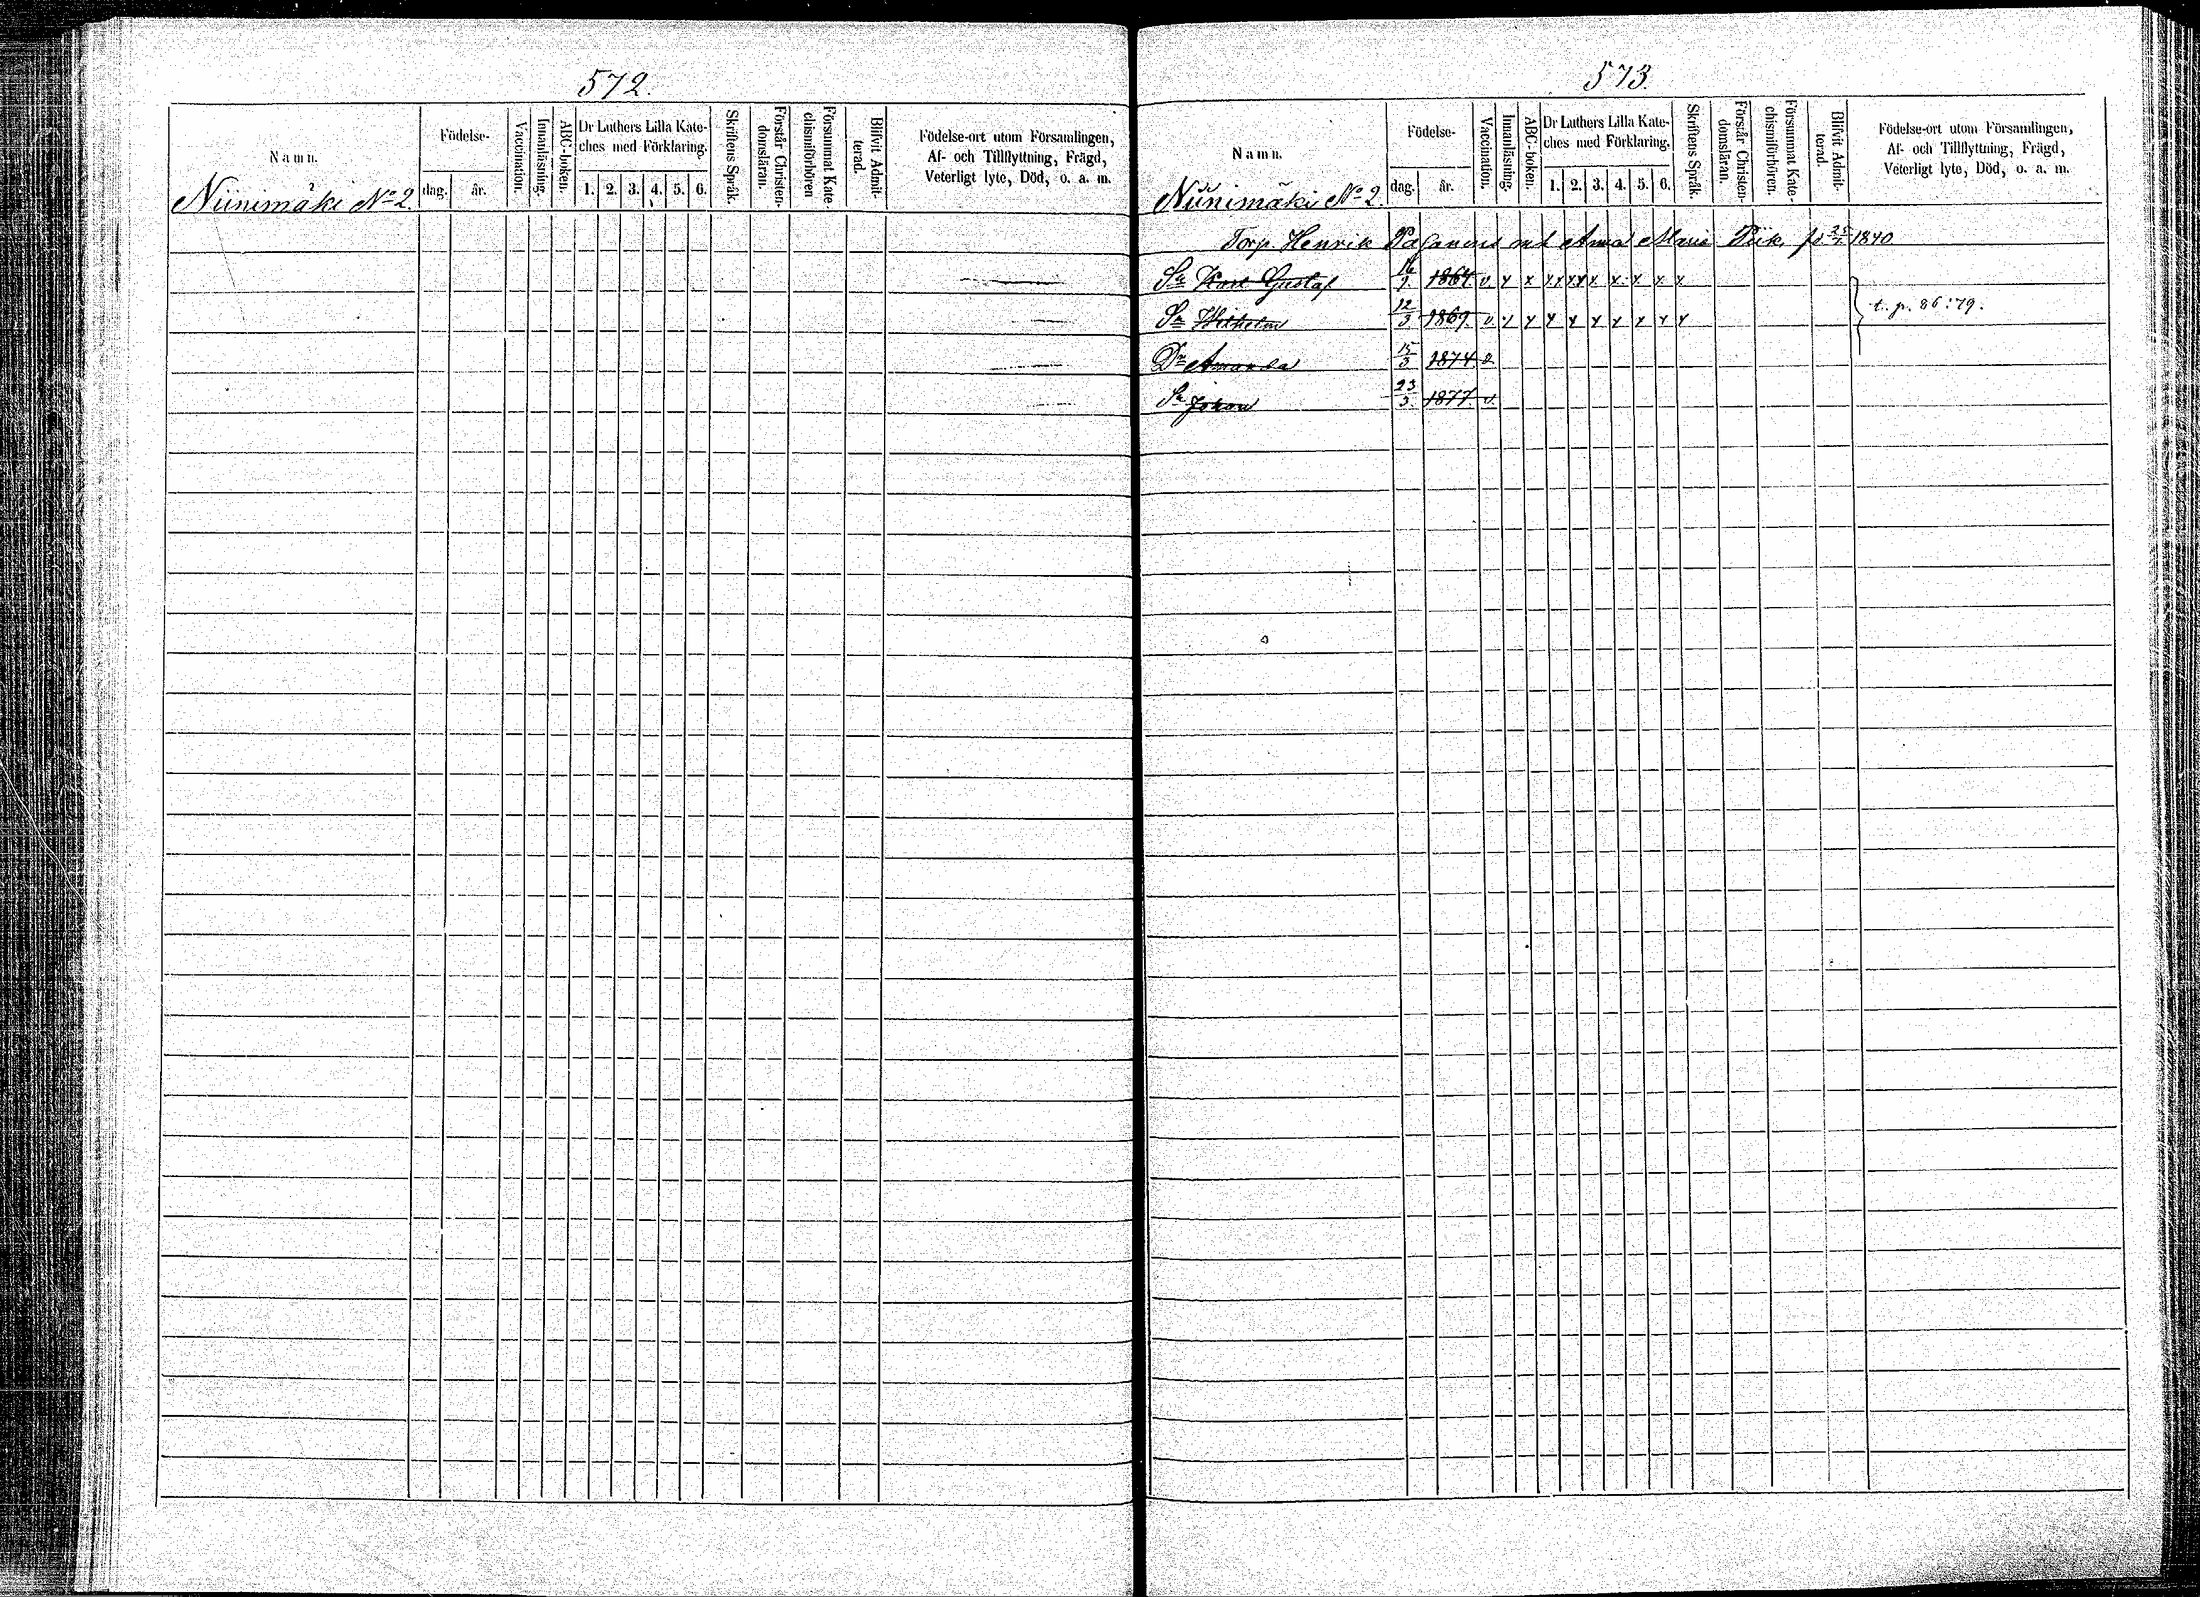 572.
Namn.
Födelse-
dag.
år.
Vaccination.
Innanläsning.
ABC-boken.
Dr Luthers Lilla Kate-
ches med Förklaring.
1. 2. 3. 4. 5. 6.
Skriftens Språk.
Förstår Christen-
domsläran.
Försummat Kate-
chismiförhören
Blifvit Admit-
terad.
Födelse-ort utom Församlingen,
Af- och Tillflyttning, Frägd,
Veterligt lyte, Död, o. a. m.
Niinimäki No 2.
573.
Namn.
Födelse-
dag.
år.
Vaccination.
Innanläsning.
ABC-boken.
Dr Luthers Lilla Kate-
ches med Förklaring.
1. 2. 3. 4. 5. 6.
Skriftens Språk.
Förstår Christen-
domsläran.
Försummat Kate-
chismiförhören.
Blifvit Admit-
terad.
Födelse-ort utom Församlingen,
Af- och Tillflyttning, Frägd,
Veterligt lyte, Död, o. a. m.
Niinimäki No 2.
Torp. Henrik Anna Maria Piik, 1840
Sn Karl Gustaf 16/9 1864. v. x x x x x x x x x x x
Sn Wilhelm 12/3 1869. v. x x x x x x x x x
t. p. 86:79.
Dr Amanda 15/3 1874. v.
Sn Johan 23/3. 1877. v.